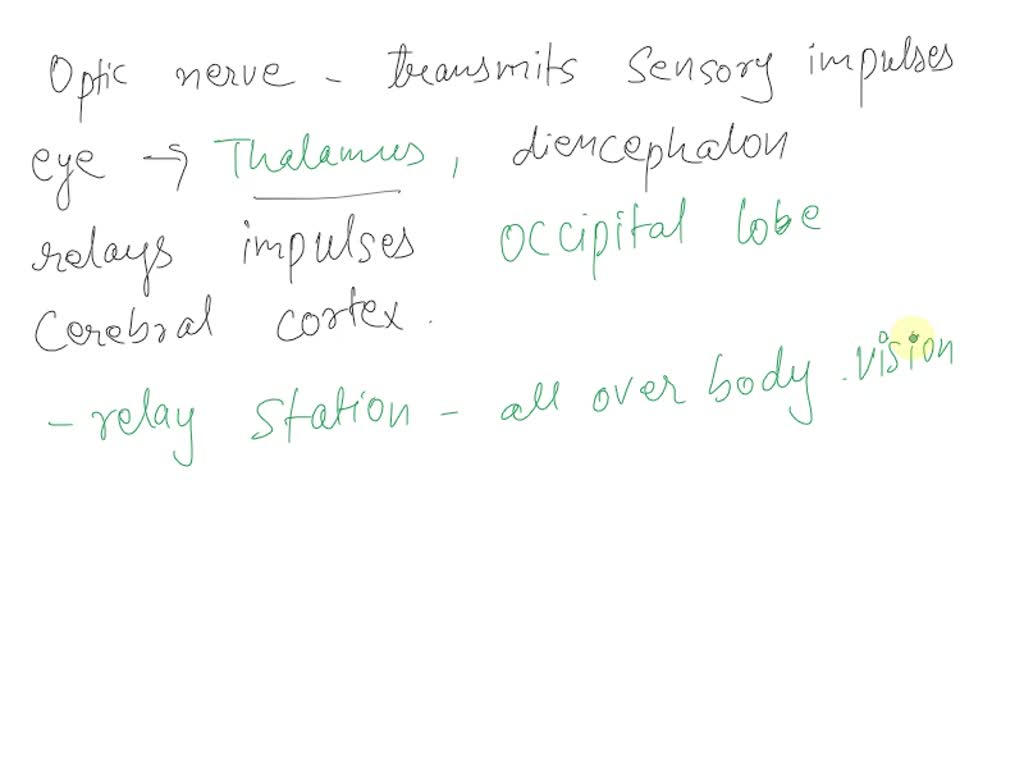 Optic nerve - transmits sensory impulses
eye → Thalamus, diencephalon
relays impulses occipital lobe
Cerebral cortex.
- relay station - all over body. vision